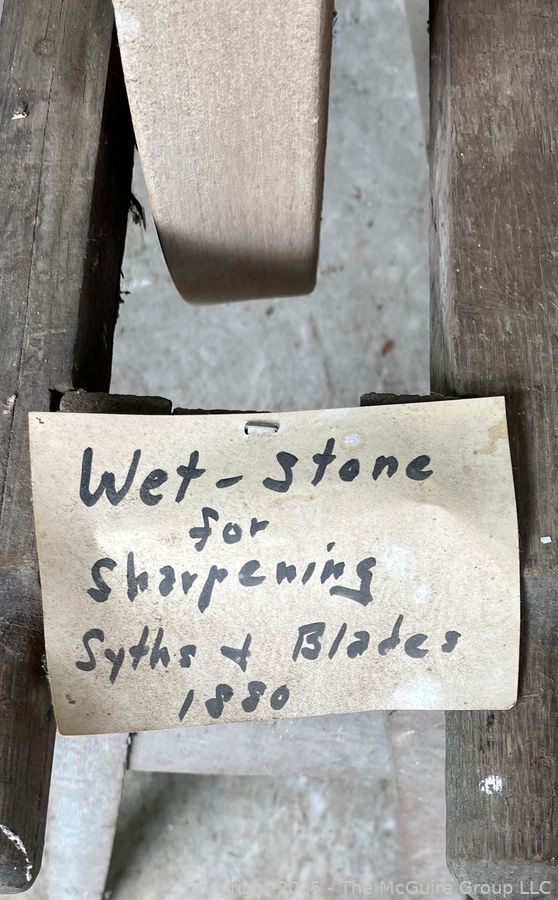 Wet-Stone
for
Sharpening
Syths & Blades
1880
2025 - The McGuire Group LLC